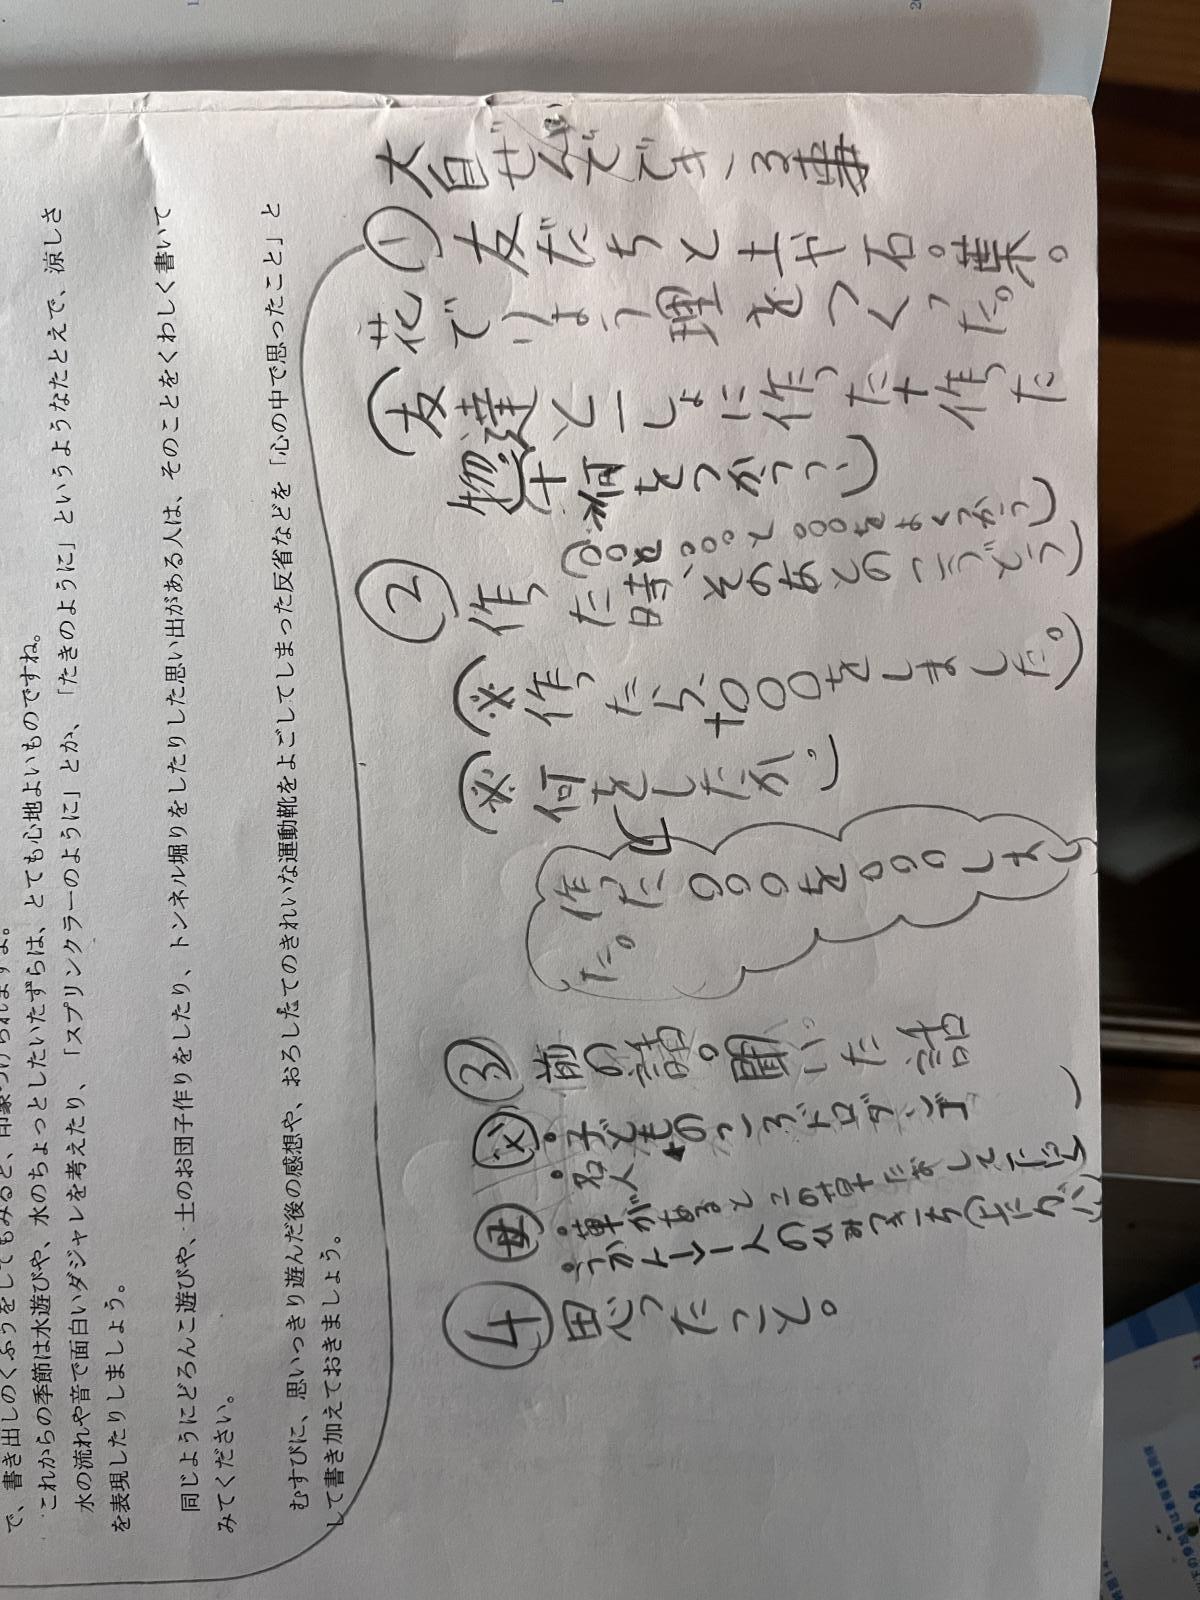 で、書き出しのくふうをしてもみると、印象づけられますよ。
これからの季節は水遊びや、水のちょっとしたいたずらは、とても心地よいものですね。
水の流れや音で面白いダジャレを考えたり、「スプリンクラーのように」とか、「たきのように」というようなたとえで、涼しさ
を表現したりしましょう。
同じようにどろんこ遊びや、土のお団子作りをしたり、トンネル堀りをしたりした思い出がある人は、そのことをくわしく書いて
みてください。
むすびに、思いっきり遊んだ後の感想や、おろしたてのきれいな運動靴をよごしてしまった反省などを「心の中で思ったこと」と
して書き加えておきましょう。
大自ぜんでできる事
① 友だちと土や石。葉。
花でりょう理をつくった。
(友達と一しょに作った+作った
物。+何をつかって)
② 作った時、そのあとのこうどう)
(※作ったら、+○○をしました。)
(※何をしたか。)
作った○○○を○○○しまし
た。
③ 前の話。聞いた話
父 ・子どものころドロダンゴ
名人
母
④ 思ったこと。